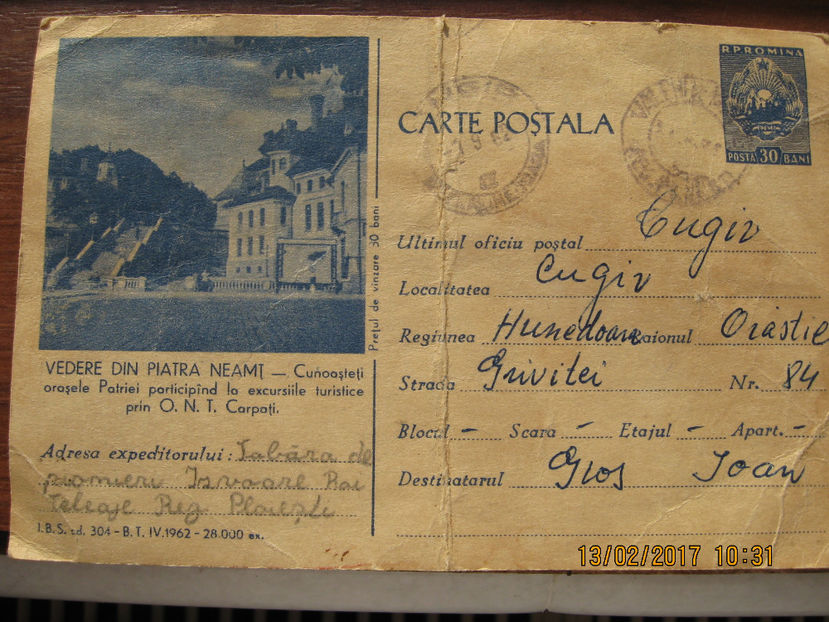 R.P.ROMINA
POSTA 30 BANI
CARTE POȘTALA
Ultimul oficiu poștal Cugir
Localitatea Cugir
Regiunea Hunedoara Raionul Orastie
Strada Grivitei Nr. 84
Blocul - Scara - Etajul - Apart. -
Destinatarul Gros Ioan
Prețul de vînzare 30 bani
VEDERE DIN PIATRA NEAMȚ — Cunoașteți
orașele Patriei participînd la excursiile turistice
prin O. N. T. Carpați.
Adresa expeditorului: Tabăra de
pionieri Izvoare Rai
Teleaje Reg Ploiești
I.B.S. cd. 304 - B. T. IV.1962 - 28.000 ex.
13/02/2017 10:31